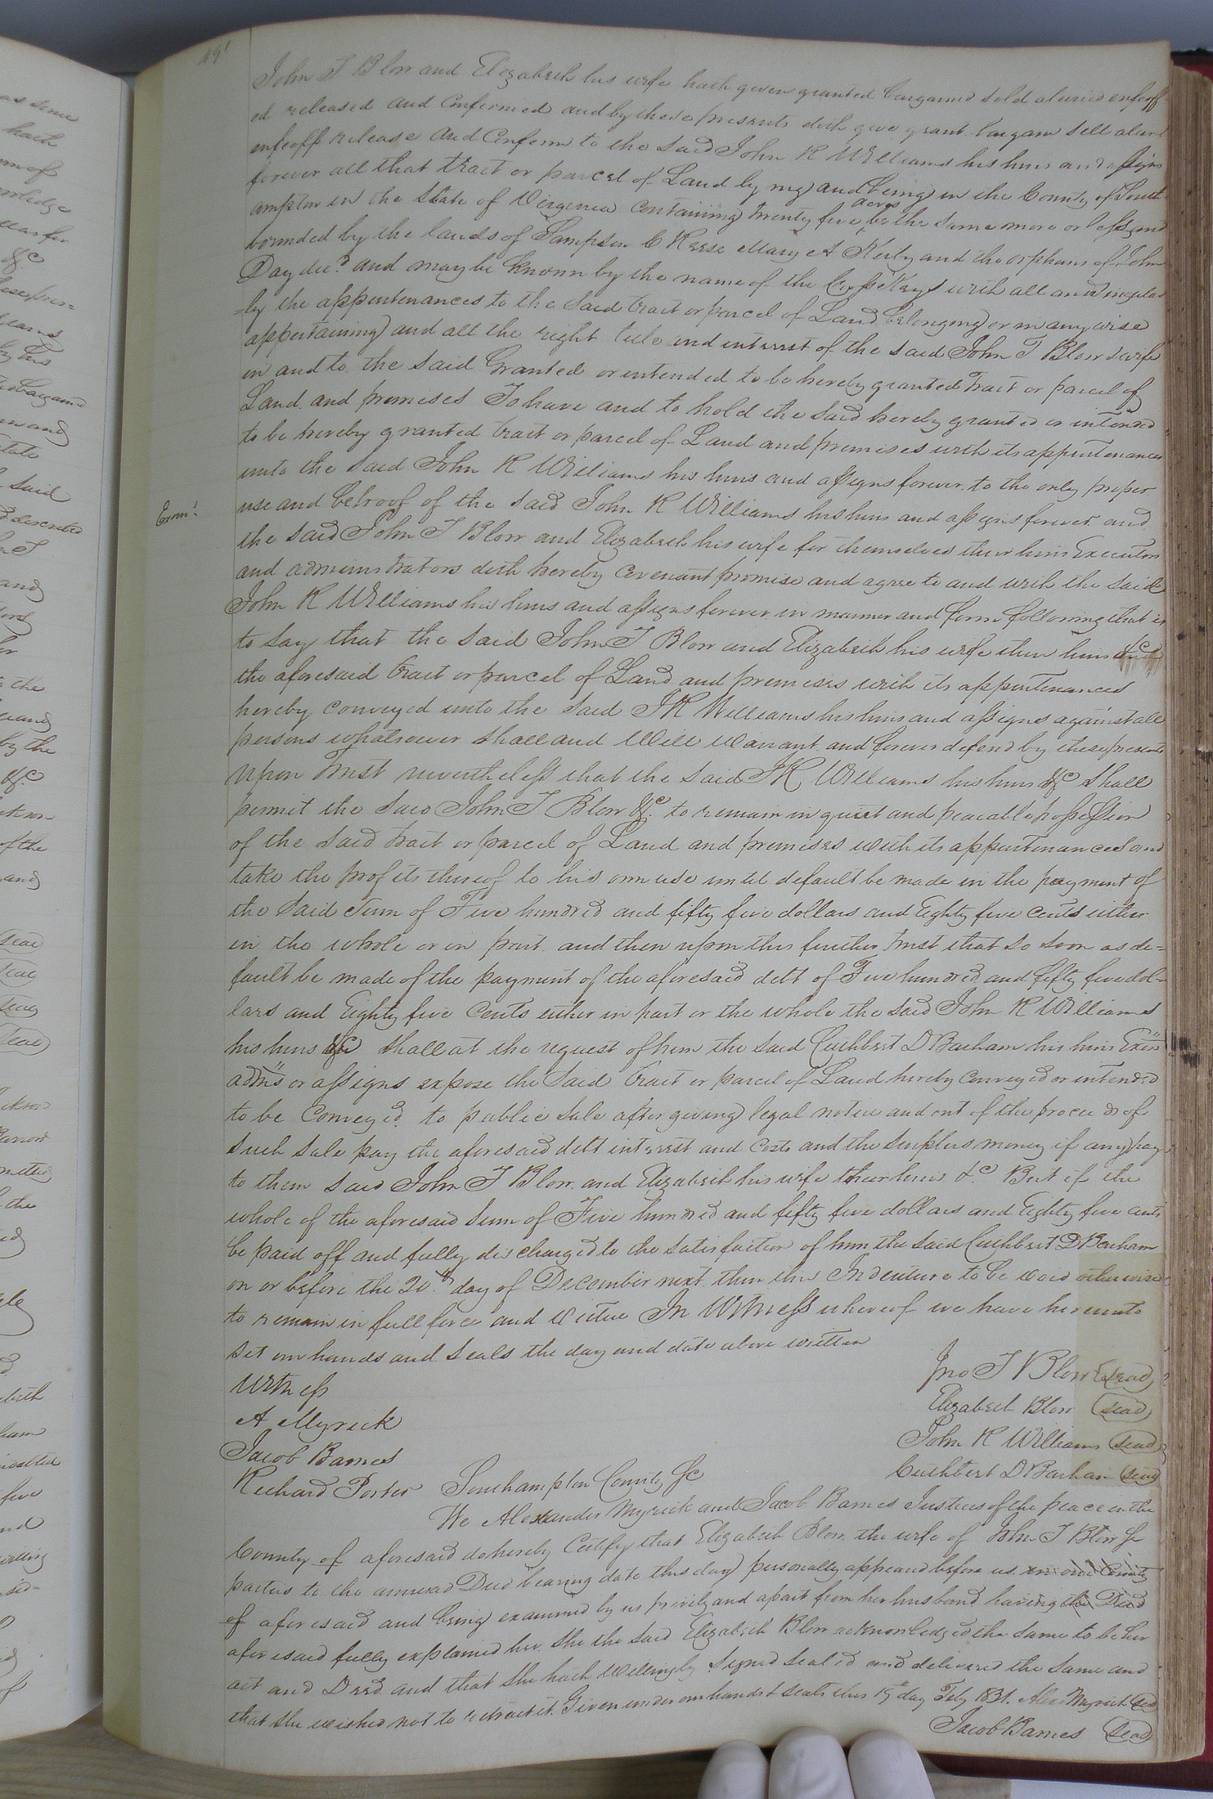 John T Blow and Elizabeth his wife hath given granted bargained sold aliened enfeoff
ed released and Confirmed and by these presents doth give grant bargain sell alien
enfeoff release and Confirm to the said John R Williams his heirs and assigns
forever all that tract or parcel of Land lying and being in the County of South
ampton in the State of Virginia containing twenty five acres be the same more or less and
bounded by the lands of Sampson C Reese Mary A and the orphans of John
Day decd. and may be known by the name of the with all and singular
ly the appurtenances to the said tract or parcel of Land belonging or in any wise
appertaining and all the right title and interest of the said John T Blow & wife
in and to the said Granted or intended to be hereby granted Tract or parcel of
Land and premises To have and to hold the said hereby granted or intended
to be hereby granted tract or parcel of Land and premises with its appurtenances
unto the said John R Williams his heirs and assigns forever to the only proper
use and behoof of the said John R Williams his heirs and assigns forever and
Exmd.
the said John T Blow and Elizabeth his wife for themselves their heirs Executors
and administrators doth hereby covenant promise and agree to and with the said
John R Williams his heirs and assigns forever in manner and form following that is
to say that the said John T Blow and Elizabeth his wife their heirs &c
the aforesaid tract or parcel of Land and premises with its appurtenances
hereby conveyed unto the said JR Williams his heirs and assigns against all
persons whatsoever shall and Will warrant and forever defend by these presents
Upon trust nevertheless that the said JR Williams his heirs &c shall
permit the said John T Blow &c. to remain in quiet and peacable possession
of the said tract or parcel of Land and premises with its appurtenances and
take the profits thereof to his own use until default be made in the payment of
the said sum of Five hundred and fifty five dollars and Eighty five cents either
in the whole or in part and then upon this further trust that so soon as de=
fault be made of the payment of the aforesaid debt of Five hundred and fifty five dol-
lars and Eighty five Cents either in part or the whole the said John R Williams
his heirs &c shall at the request of him the said Cuthbert D Barham his heirs Exors
admrs or assigns expose the said tract or parcel of Land hereby conveyed or intended
to be Conveyed. to public sale after giving legal notice and out of the proceeds of
such sale pay the aforesaid debt interest and costs and the surplus money if any pay
to them said John T Blow and Elizabeth his wife their heirs &c But if the
whole of the aforesaid sum of Five hundred and fifty five dollars and Eighty five cents
be paid off and fully discharged to the satisfaction of him the said Cuthbert D Barham
on or before the 20th day of December next then this Indenture to be void otherwise
to remain in full force and virtue In Witness whereof we have hereunto
set our hands and seals the day and date above written
Witness
Jno T Blow (seal)
A Myrick
Elizabeth Blow (seal)
Jacob Barnes
John R Williams (seal)
Richard Porter
Cuthbert D Barham (seal)
Southampton County Sc
We Alexander Myrick and Jacob Barnes Justices of the peace in the
County of aforesaid do hereby Certify that Elizabeth Blow the wife of John T Blow
parties to the annexed Deed bearing date this day personally appeared before us in our County
of aforesaid and being examined by us privily and apart from her husband having the Deed
aforesaid fully explained her. She the said Elizabeth Blow acknowledged the same to be her
act and Deed and that she hath willingly Signed sealed and delivered the same and
that she wished not to retract it. Given under our hands & seals this 19th day Feby 1831. Alexr Myrick (seal)
Jacob Barnes (seal)